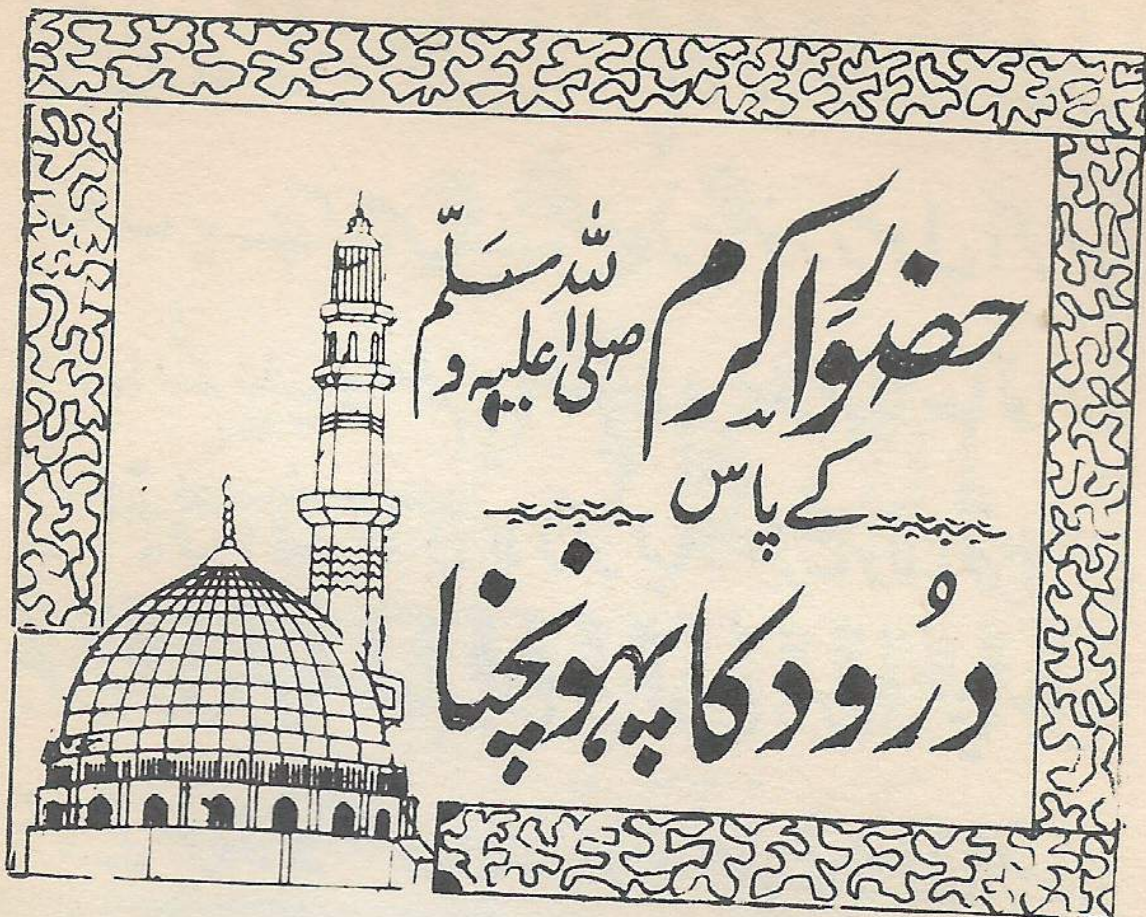 حضورِ اکرم صلی اللہ علیہ وسلّم
کے پاس
دُرود کا پہونچنا